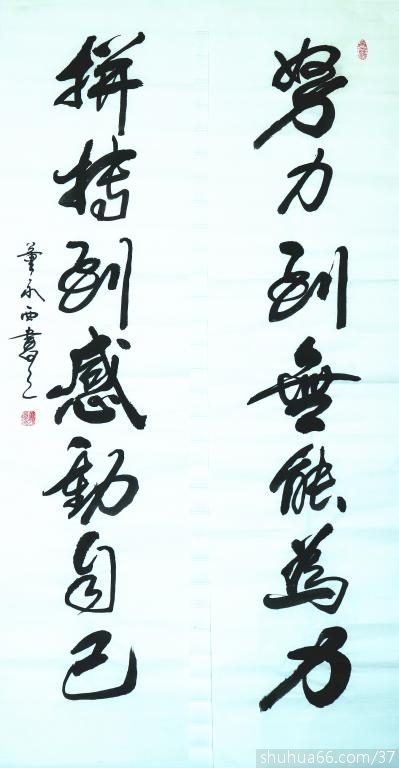 努力到無能為力
拼搏到感動自己
董永西書
shuhua66.com/37